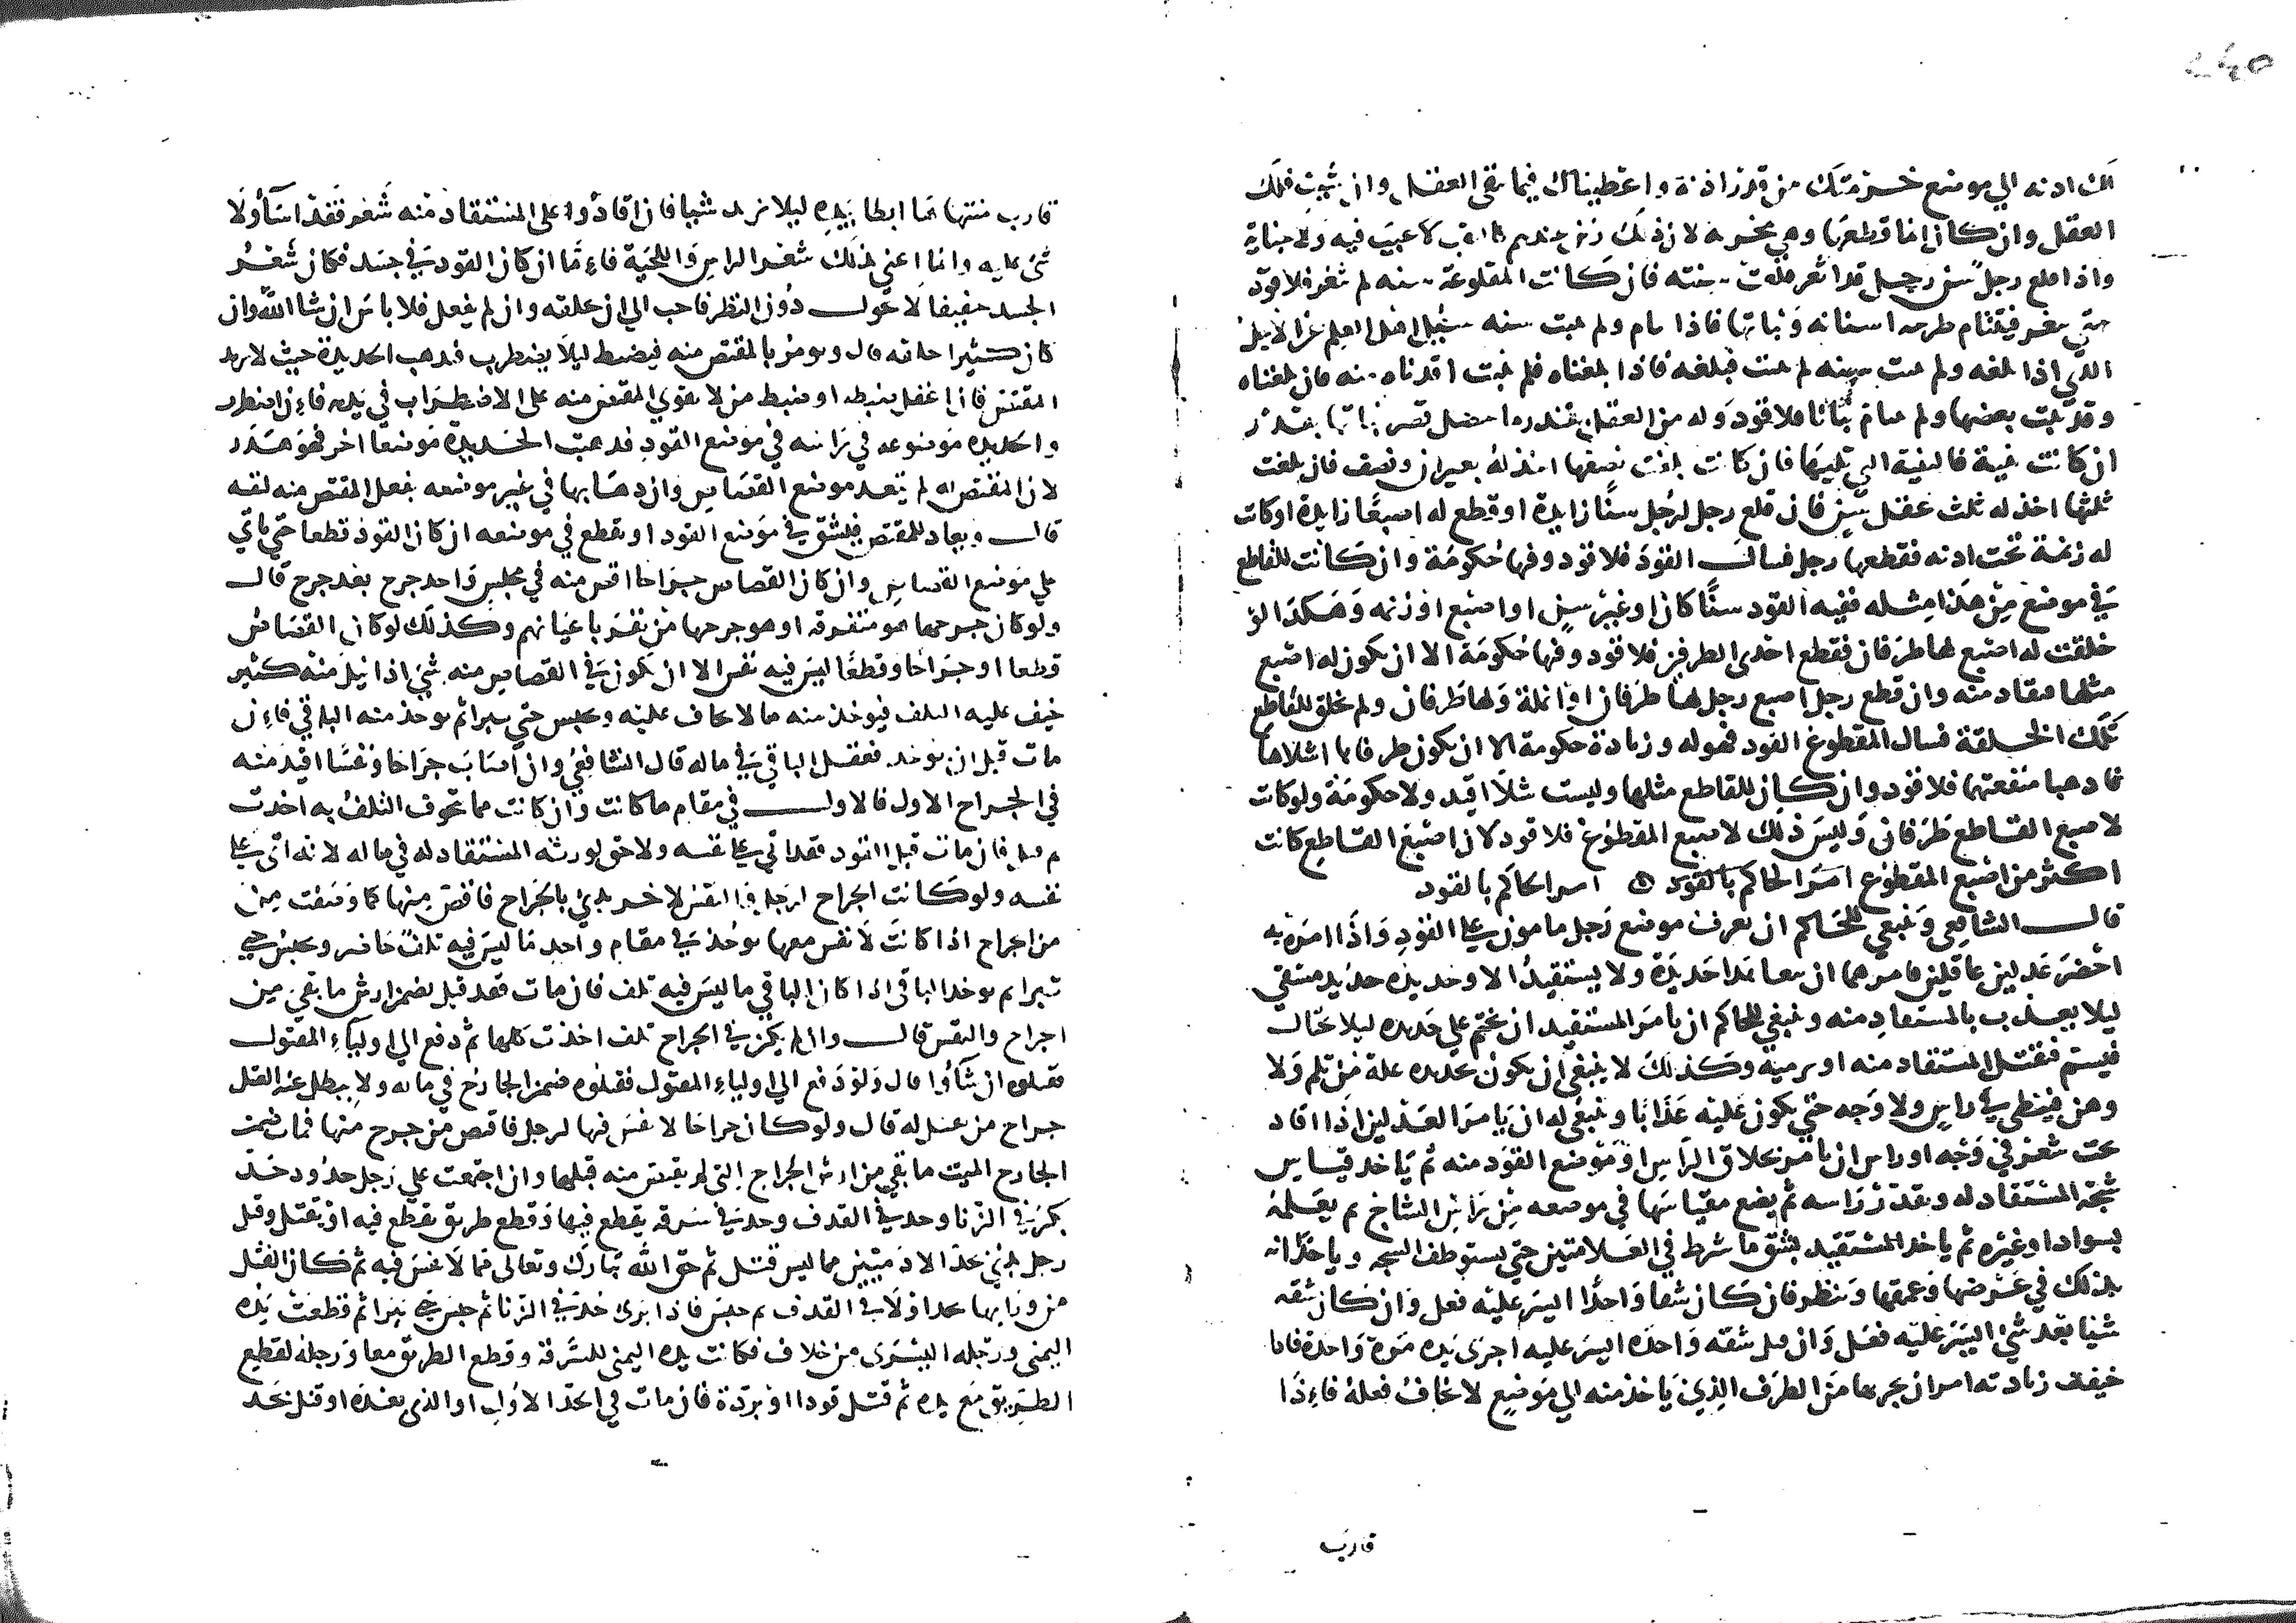 لك اذنه الي موضع خرمتك من قدر اذنه واعطيناك فيما بقي العقل وان شيت فلك
العقل وان كان انما قطعها وهي مخرمه لان ذلك عندهم لا عيب فيه ولا جناية
واذا قلع رجل سن رجل قد اثغر قلعت سنه فان كانت المقلوعة سنه لم ثغر فلا قود
حتي يثغر فيتتام طرحه اسنانه ونباتها فاذا تتام ولم تنبت سنه سيل اهل العلم عن الاجل
الذي اذا بلغه ولم تنبت سنه لم تنبت فبلغه فاذا بلغناه فلم تنبت اقدناه منه فان بلغناه
وقد نبت بعضها ولم تتام نباتا فلا قود وله من العقل بقدر ما قصر نباتها بقدر
ان كانت ثنية فالثنية التي تليها فان كانت بلغت نصفها اخذ له بعيران ونصف فان بلغت
ثلثها اخذ له ثلث عقل سن فان قلع رجل لرجل سنا زايدة او قطع له اصبعا زايدة او كانت
له زنمة تحت اذنه فقطعها رجل فسال القود فلا قود وفيها حكومة وان كانت للقاطع
في موضع من هذا مثله ففيه القود سنا كان او غير سن او اصبع او زنمه وهكذا لو
خلقت له اصبع لها طرفان فقطع احدى الطرفين فلا قود وفيها حكومة الا ان يكون له اصبع
مثلها فيقاد منه وان قطع رجل اصبع رجل لها طرفان او انملة ولها طرفان ولم يخلق للقاطع
تلك الخلقة فسال المقطوع القود فهو له وزيادة حكومة الا ان يكون طرفاها اشلاها
فاذهبا منفعتها فلا قود وان كان للقاطع مثلها وليست شلا اقيد ولا حكومة ولو كانت
لاصبع القاطع طرفان وليس ذلك لاصبع المقطوع فلا قود لان اصبع القاطع كانت
اكثر من اصبع المقطوع امر الحاكم بالقود ٥ امر الحاكم بالقود
قال الشافعي وينبغي للحاكم ان يعرف موضع رجل مامون علي القود واذا امره به
احضر عدلين عاقلين فامرهما ان يتعاهدا حديدة ولا يستقيد الا وحديده حديد مسقي
ليلا يعذب بالمستقاد منه وينبغي للحاكم ان يامر المستقيد ان يختم علي حديده ليلا يحتال
فيسم فيقتل المستقاد منه او يزمنه وكذلك لا ينبغي ان يكون بحديده علة من ثلم ولا
وهن فيبطي في راس ولا وجه حتي يكون عليه عذابا وينبغي له ان يامر العدلين اذا اقاد
تحت شعر في وجه او راس ان يامر بحلاق الراس او موضع القود منه ثم ياخذ قياس
شجة المستقاد له ويقدر راسه ثم يضع مقياسها في موضعه من راس الشاج ثم يعلمه
بسواد او غيره ثم ياخذ المستقيد بشق ما شرط في العلامتين حتي يستوظف الشجه وياخذانه
بذلك في عرضها وعمقها وينظر فان كان شقا واحدا ايسر عليه فعل وان كان شقه
شيا بعد شي ايسر عليه فعل وان قيل شقه واحده ايسر عليه اجرى يده مرة واحدة فاذا
خيفت زيادته امر ان يجريها من الطرف الذي ياخذ منه الي موضع لا يخاف فعله فاذا
قارب
قارب منتهاها ابطا بيده ليلا يزيد شيا فان اقادوا علي المستقاد منه شعر فقد اساوا ولا
شي عليه وانما اعني بذلك شعر الراس واللحية فاما ان كان القود في جسد فكان شعر
الجسد خفيفا لا يحول دون النظر فاحب الي ان يحلقه وان لم يفعل فلا باس ان شا الله وان
كان كثيرا حلقه قال ويومر بالمقتص منه فيضبط ليلا يضطرب فتذهب الحديدة حيث لا يريد
المقتص فان اغفل ضبطه او ضبط من لا يقوي المقتص منه علي الاضطراب في يده فان اضطرب
والحديده موضوعه في راسه في موضع القود فذهبت الحديدة موضعا اخر فهو هدر
لان المقتص له لم يتعد موضع القصاص وان ذهابها في غير موضعه بفعل المقتص منه لنفسه
قال ويعاد للمقتص فيشق في موضع القود او يقطع في موضعه ان كان القود قطعا حتي ياتي
علي موضع القصاص وان كان القصاص جراحا اقتص منه في مجلس واحد جرح بعد جرح قال
ولو كان جرحها هو متفرقه او هو جرحها من نفر باعيانهم وكذلك لو كان القصاص
قطعا او جراحا وقطعا ليس فيه نفس الا ان يكون في القصاص منه شي اذا نيل منه كثير
خيف عليه التلف فيوخذ منه ما لا يخاف عليه ويحبس حتي يبرا ثم يوخذ منه الباقي فان
مات قبل ان يوخذ فعقل الباقي في ماله قال الشافعي وان اصاب جراحا ونفسا اقيد منه
في الجراح الاول فالاول في مقام ما كانت وان كانت مما يخوف التلف به اخذت
ثم قتل فان مات قبل القود فقد اتي علي نفسه ولا حق لورثه المستقاد له في ماله لانه اتى علي
نفسه ولو كانت الجراح لرجل والنفس لاخر بدي بالجراح فاقتص منها كما وصفت من
من الجراح اذا كانت لا نفس معها يوخذ في مقام واحد ما ليس فيه تلف حاضر ويحبس حتي
تبرا ثم يوخذ الباقي اذا كان الباقي ما ليس فيه تلف فان مات فقد قيل يضمن ارش ما بقي من
الجراح والنفس قال وان لم يكن في الجراح تلف اخذت كلها ثم دفع الي اولياء المقتول
فقتلوه ان شاوا قال ولو دفع الي اولياء المقتول فقتلوه ضمن الجارح في ماله ولا يبطل عنه القتل
جراح من قتله قال ولو كان جراحا لا نفس فيها لرجل فاقتص من جرح منها فمات ضمنت
الجارح الميت ما بقي من ارش الجراح التي لم يقتص منه قبلها وان اجتمعت علي رجل حدود حد
بكر في الزنا وحد في القذف وحد في سرقه يقطع فيها وقطع طريق يقطع فيه او يقتل وقتل
رجل بدي بحد الادميين مما ليس قتل ثم حق الله تبارك وتعالى مما لا نفس فيه ثم كان القتل
من ورايها بحد اولا في القذف ثم حبس فاذا برئ حد في الزنا ثم حبس حتي يبرا ثم قطعت يده
اليمنى ورجله اليسرى من خلاف فكانت يده اليمني للسرقة وقطع الطريق معا ورجله لقطع
الطريق مع يده ثم قتل قودا او بردة فان مات في الحد الاول او الذي بعده او قتل بحد